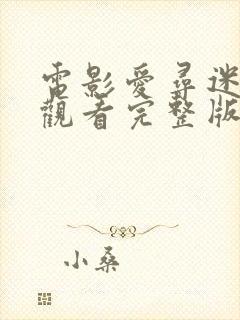 電影愛尋迷
觀看完整版
小桑